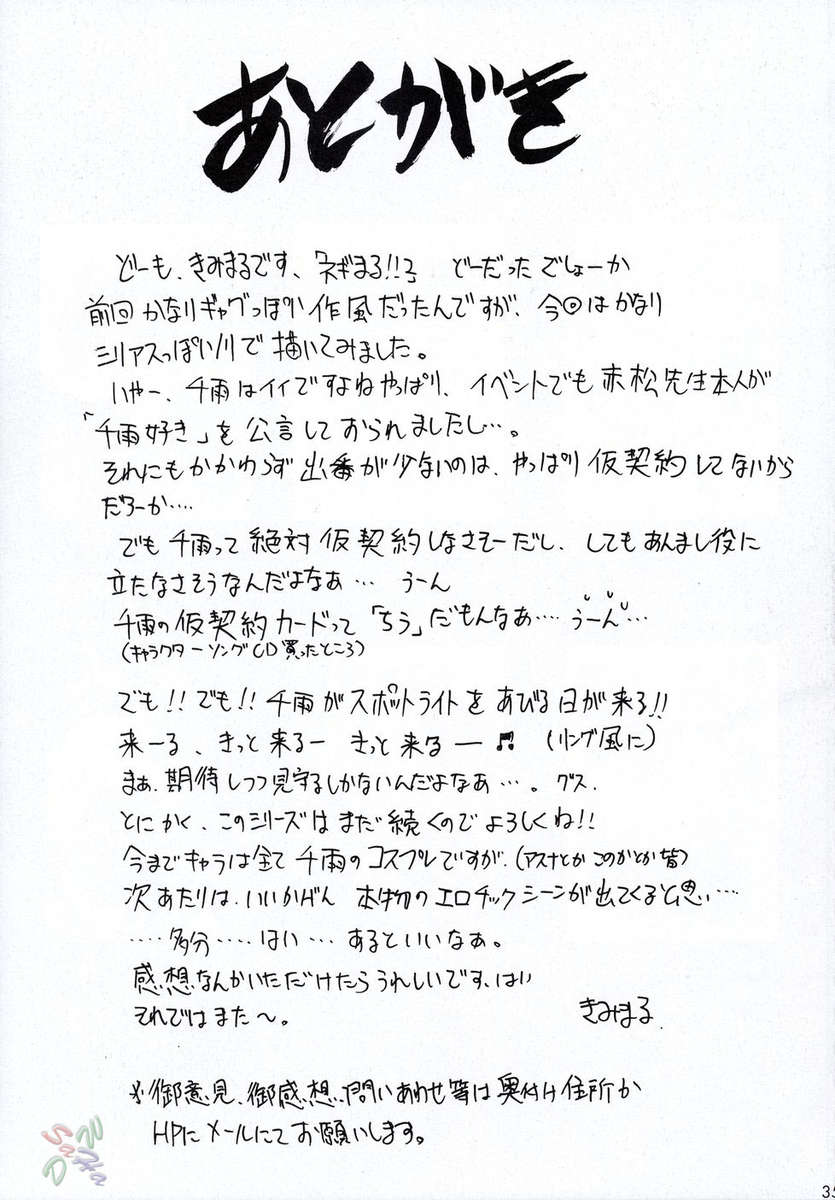 あとがき
どーも、きみまるです、「ネギまる!!」 どーだったでしょーか
前回かなりギャグっぽい作風だったんですが、今回はかなり
シリアスっぽいノリで描いてみました。
いやー、千雨はイイですよねやっぱり、イベントでも赤松先生本人が
「千雨好き」を公言しておられましたし…。
それにもかかわらず出番が少ないのは、やっぱり仮契約してないから
だろーか…
でも千雨って絶対仮契約しなさそーだし、してもあんまし役に
立たなさそうなんだよなあ… うーん
千雨の仮契約カードって「ちう」だもんなあ…うーん…
(キャラクターソングCD買ったところ)
でも!!でも!!千雨がスポットライトをあびる日が来る!!
来ーる、きっと来るー きっと来るー♬ (リング風に)
まぁ、期待しつつ見守るしかないんだよなあ…。グス.
とにかく、このシリーズはまだ続くのでよろしくね!!
今までキャラは全て千雨のコスプレですが、(アスナとかこのかとか皆)
次あたりは、いいかげん 本物のエロチックシーンが出てくると思い…
……多分……はい…あるといいなぁ。
感想なんかいただけたらうれしいです、はい
それではまた〜。
きみまる
※御意見、御感想、問いあわせ等は奥付け住所か
HPにメールにてお願いします。
35